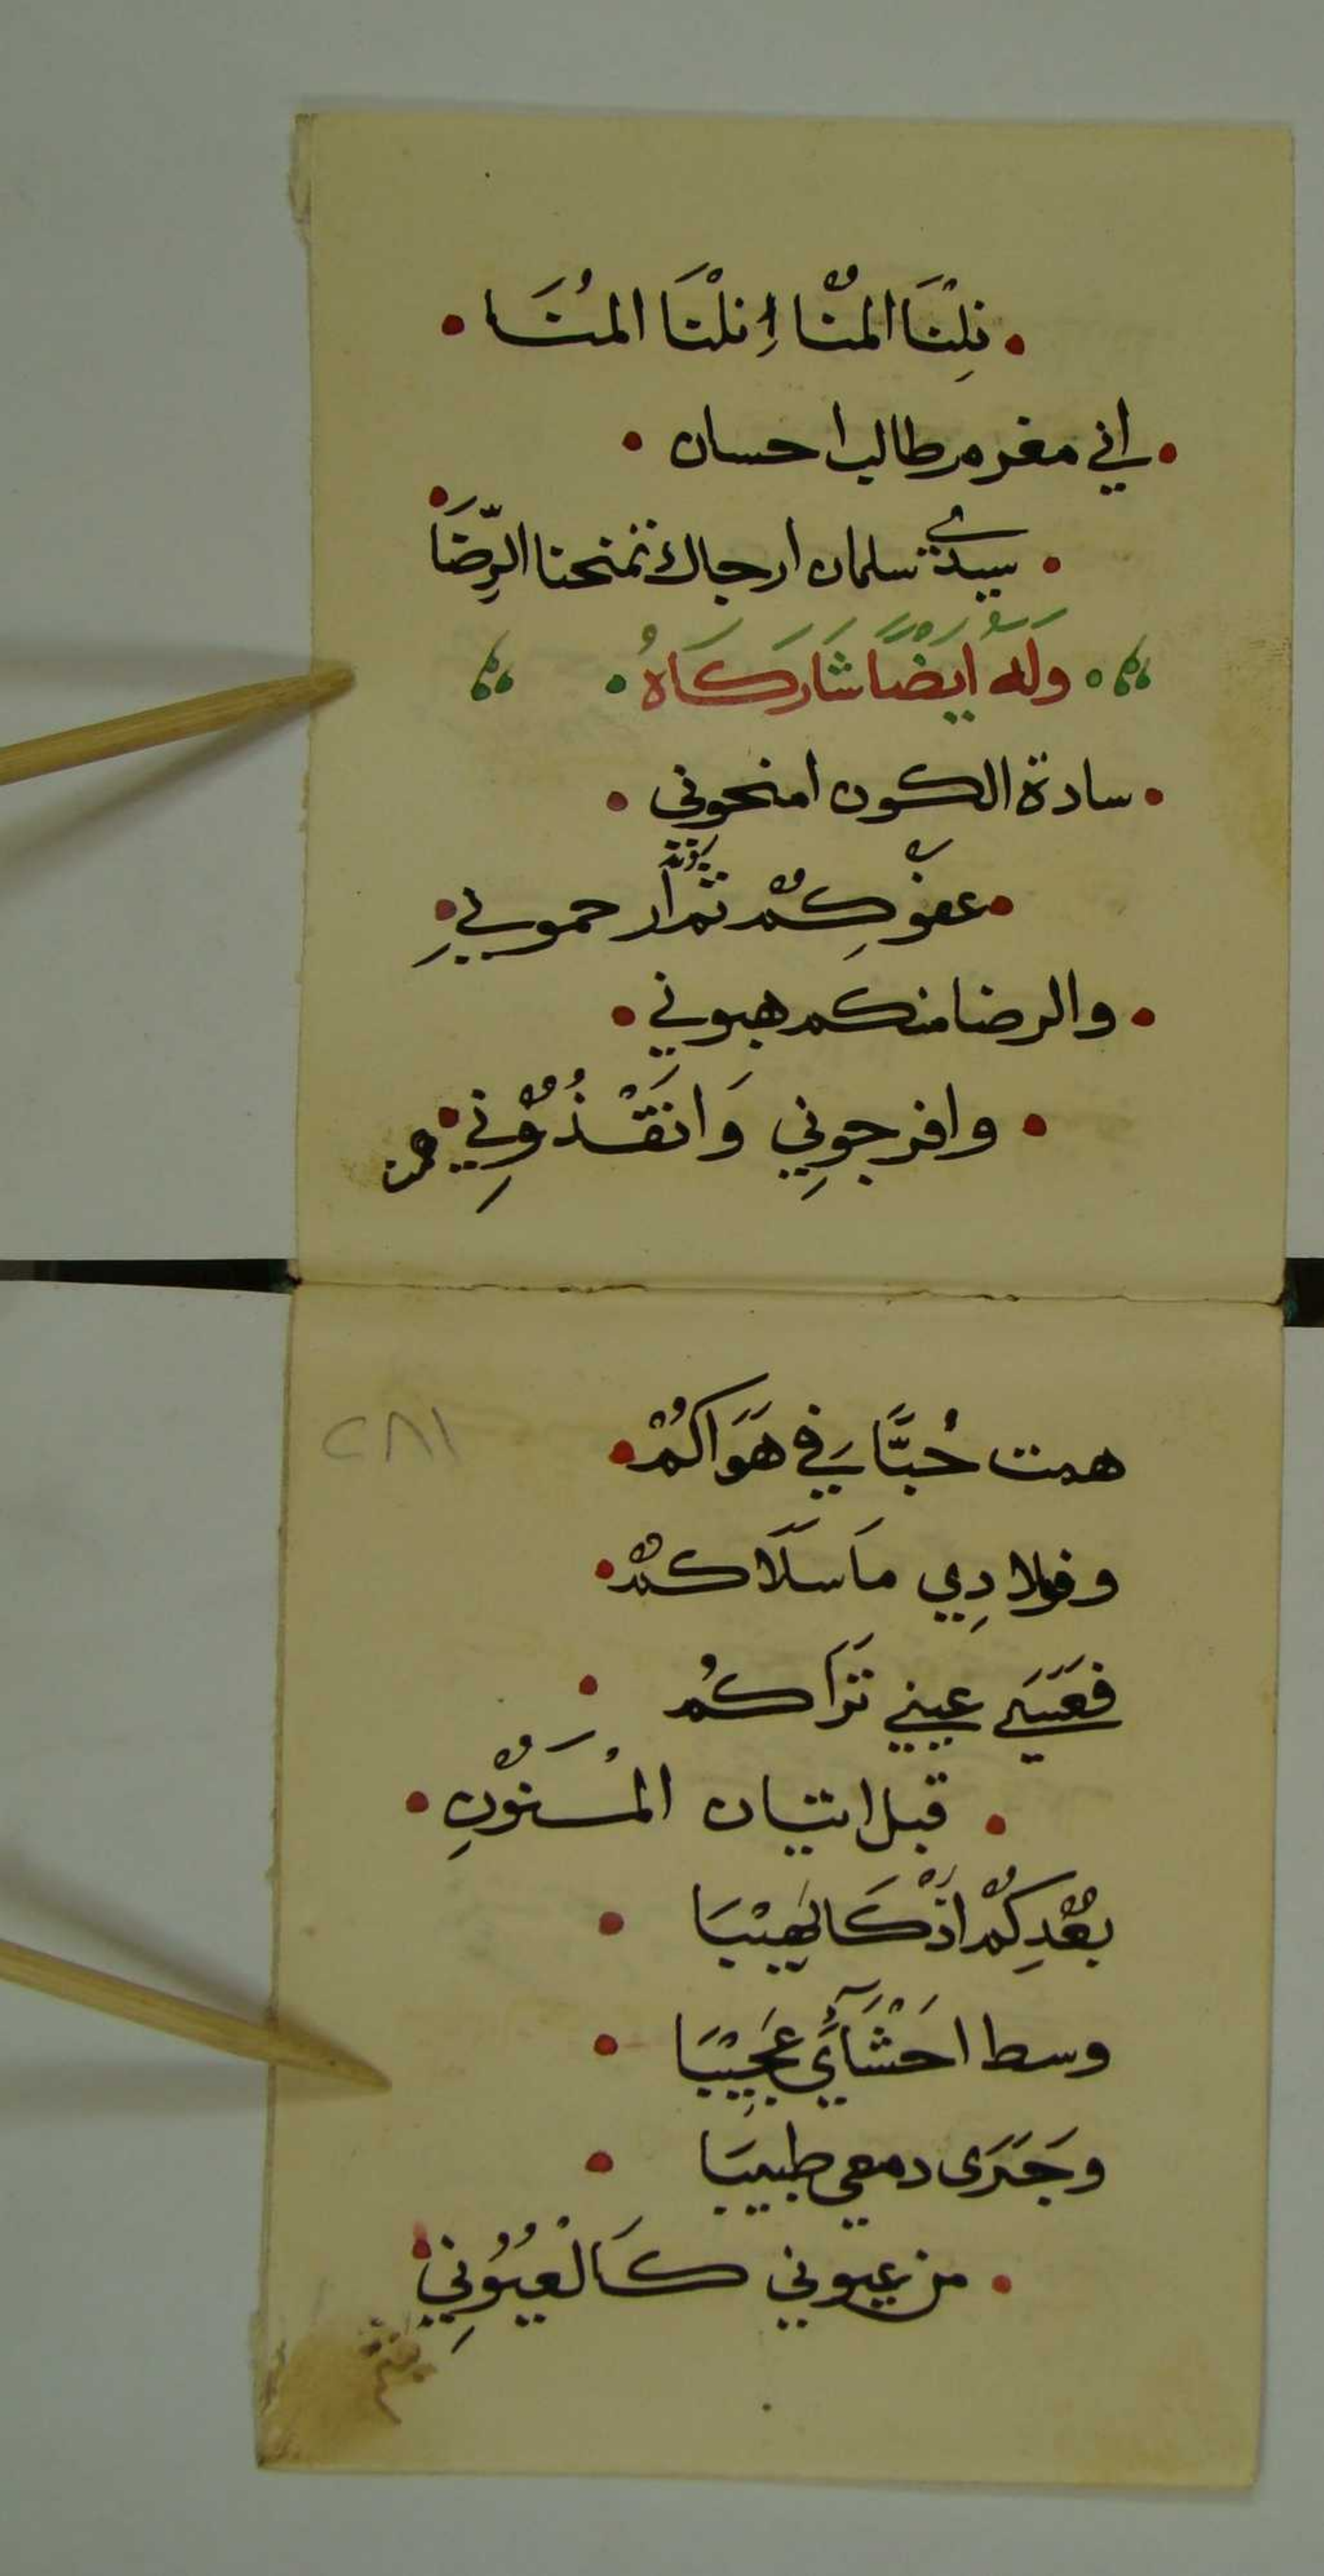 • نِلْنَا المُنَّا إِنلْنَا المُنَا •
• إني مغرم طالب احسان •
• سيدي سلمان ارجاك تمنحنا الرِّضَا •
• وَلَهُ ايْضًا شَارَكَاهُ •
• سادة الكون امنحوني •
• عفوِكُمْ ثم ارحموني •
• والرضا منكم هبوني •
• وافرجوني وَانْقَذُوْنِي •
همت
همت حُبًّا في هَوَاكُمْ •
وفؤادِي مَا سَلَاكُمْ •
فَعَسَى عيني تَرَاكُم •
• قبل اتيان المَنُوْنِ •
بُعْدِكُمْ اذْكَا لَهِيْبَا •
وسط احْشَآئِي عَجِيْبَا •
وَجَرَى دمعي طبيبَا •
• من عيوني كَالْعُيُوْنِي •
٢٨١